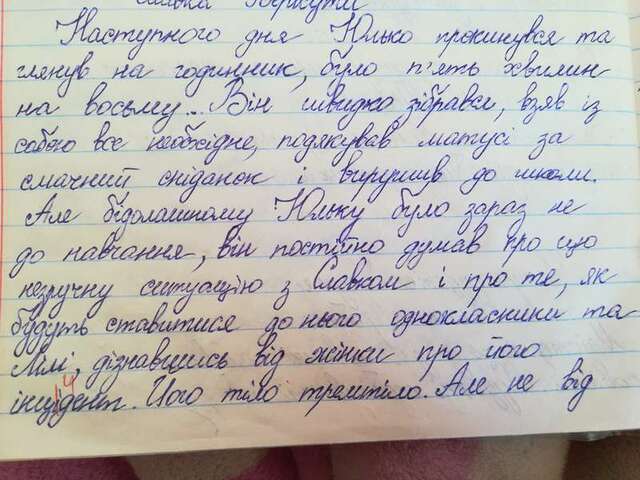 Славка Борисути
Наступного дня Юлько прокинувся та
глянув на годинник, було п'ять хвилин
на восьму... Він швидко зібрався, взяв із
собою все необхідне, подякував матусі за
смачний сніданок і вирушив до школи.
Але бідолашному Юльку було зараз не
до навчання, він постійно думав про цю
незручну ситуацію з Славком і про те, як
будуть ставитися до нього однокласники та
Лілі, дізнавшись від жінки про його
інцидент. Його тіло тремтіло. Але не від